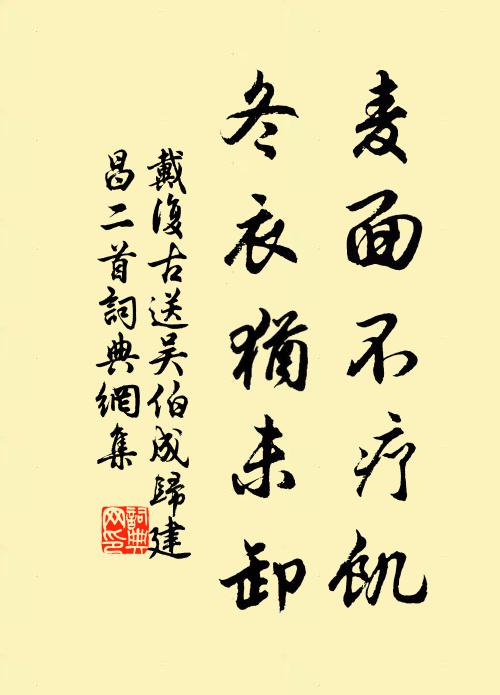 麦面不疗饥
冬衣犹未卸
戴復古送吴伯成歸建
昌二首詞典網集
詞典网印